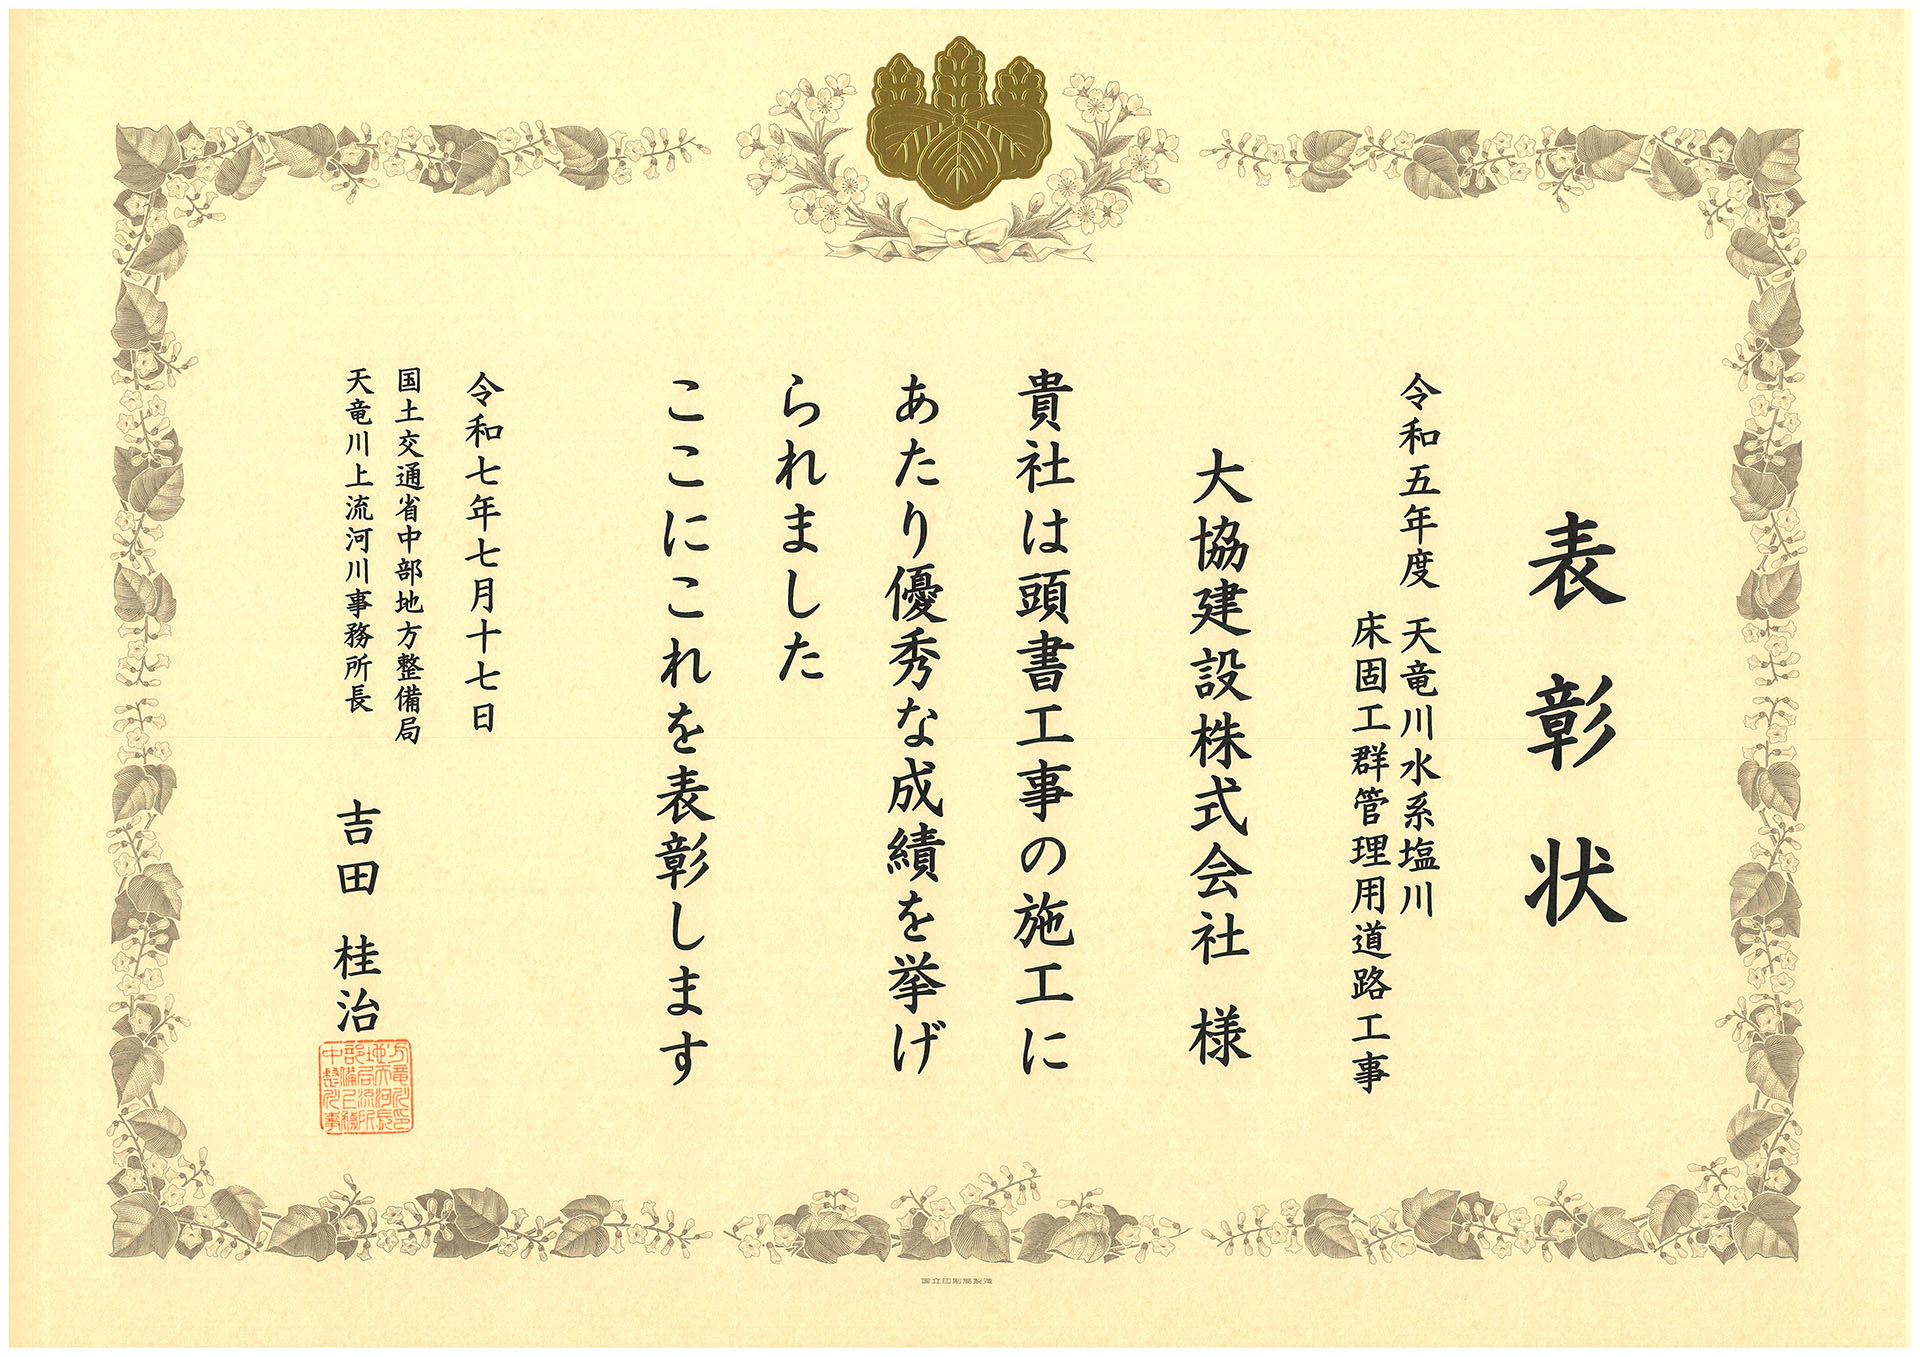 表彰状
令和五年度 天竜川水系塩川
床固工群管理用道路工事
大協建設株式会社 様
貴社は頭書工事の施工に
あたり優秀な成績を挙げ
られました
ここにこれを表彰します
令和七年七月十七日
国土交通省中部地方整備局
天竜川上流河川事務所長
吉田 桂治
国立印刷局製造